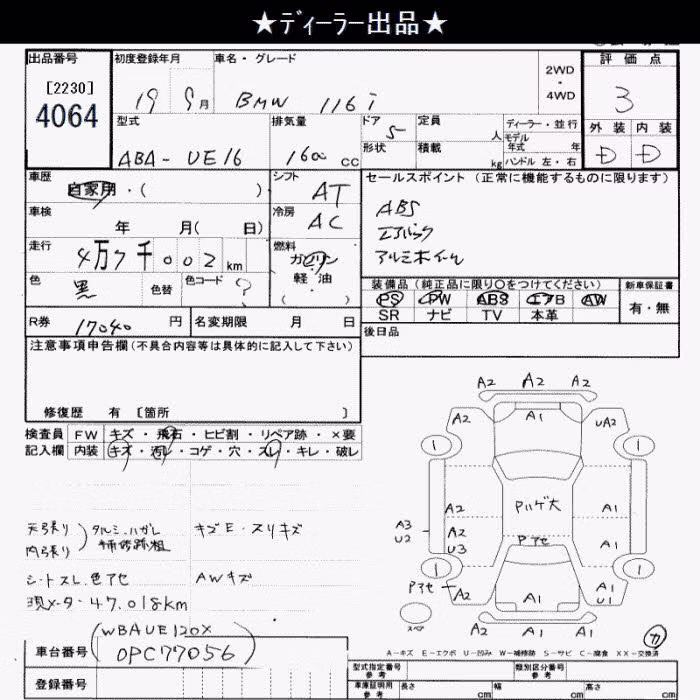 ★ディーラー出品★
出品番号
[2230]
4064
初度登録年月
19 9月
車名・グレード
BMW 116i
2WD
・
4WD
評価点
3
型式
ABA-UE16
排気量
1600 cc
ドア
5
形状
定員
人
積載
kg
ディーラー・並行
モデル
年式 年
ハンドル 左・右
外装 内装
D D
車歴
自家用・( )
シフト
AT
セールスポイント (正常に機能するものに限ります)
ABS
エアバック
アルミホイール
車検
年 月( 日)
冷房
AC
走行
4万7千002km
燃料
ガソリン
軽油
( )
色
黒
色替
色コード
?
装備品 (純正品に限り○をつけてください)
PS PW ABS エアB AW
SR ナビ TV 本革
新車保証書
有・無
R券 17040 円
名変期限 月 日
後日品
注意事項申告欄(不具合内容等は具体的に記入して下さい)
修復歴 有 [箇所 ]
検査員 FW キズ・飛石・ヒビ割・リペア跡・×要
記入欄 内装 キズ・汚れ・コゲ・穴・スレ・キレ・破レ
天張り
内張り
タルミ、ハガレ
補修跡粗
キズE・スリキズ
シートスレ、色アセ
AWキズ
現メータ:47,018km
車台番号
(WBAUE120X
0PC77056)
登録番号
A2 A2 A2
A2 A1 UA2
1 1
A2 Pハゲ大 A1
A3
U2
A2
U3
Pアセ A1
1 1
Pアセ A2 A1 A1
U1
スペア
A2 A1 A1
カ
A-キズ E-エクボ U-凹み W-補修跡 S-サビ C-腐食 XX-交換済
型式指定番号
参考
類別区分番号
参考
車庫証明用
参考
長さ cm 幅 cm 高さ cm